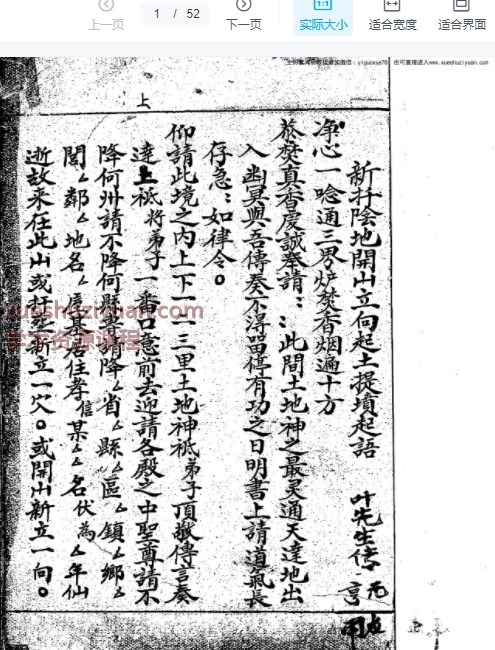 上一页
1 / 52
下一页
1:1
实际大小
适合宽度
适合界面
yiguoxue78
也可直接进入www.xueshuziyuan.com
上
新扦陰地開山立向起土提墳起語
叶先生传
元亨
净心一唸通三界炉焚香烟遍十方
恭焚真香虔誠奉請：：此間土地神之最灵通天達地出
入幽冥與吾傳奏不得留停有功之日明書上請道氣長
存急：如律令。
仰請此境之内上下一二三里土地神祇弟子頂敬傳言奏
達上祇將弟子一番口意前去迎請各殿之中聖尊請不
降何州請不降何縣請降厶省厶縣厶區厶鎮厶鄉厶
閭厶鄰厶地名厶居住孝信某厶厶名伏為厶年仙
逝故来在此山或扦新立一穴。或開山新立一向。
xueshuziyuan.com
学术资源课程